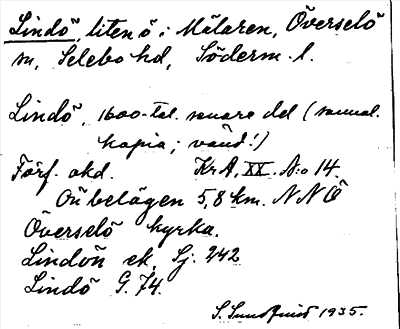 Lindö, liten ö i Mälaren, Överselö
sn, Selebo hd, Söderm. l.
Lindö, 1600-tal. senare del (samal.
kopia; vänd!)
Förf. okd. KrA, XX. A:o 14.
Ön belägen 5,8 km. NNÖ
Överselö kyrka.
Lindön ek. Sj. 242
Lindö G. 74.
S. Sundquist 1935.